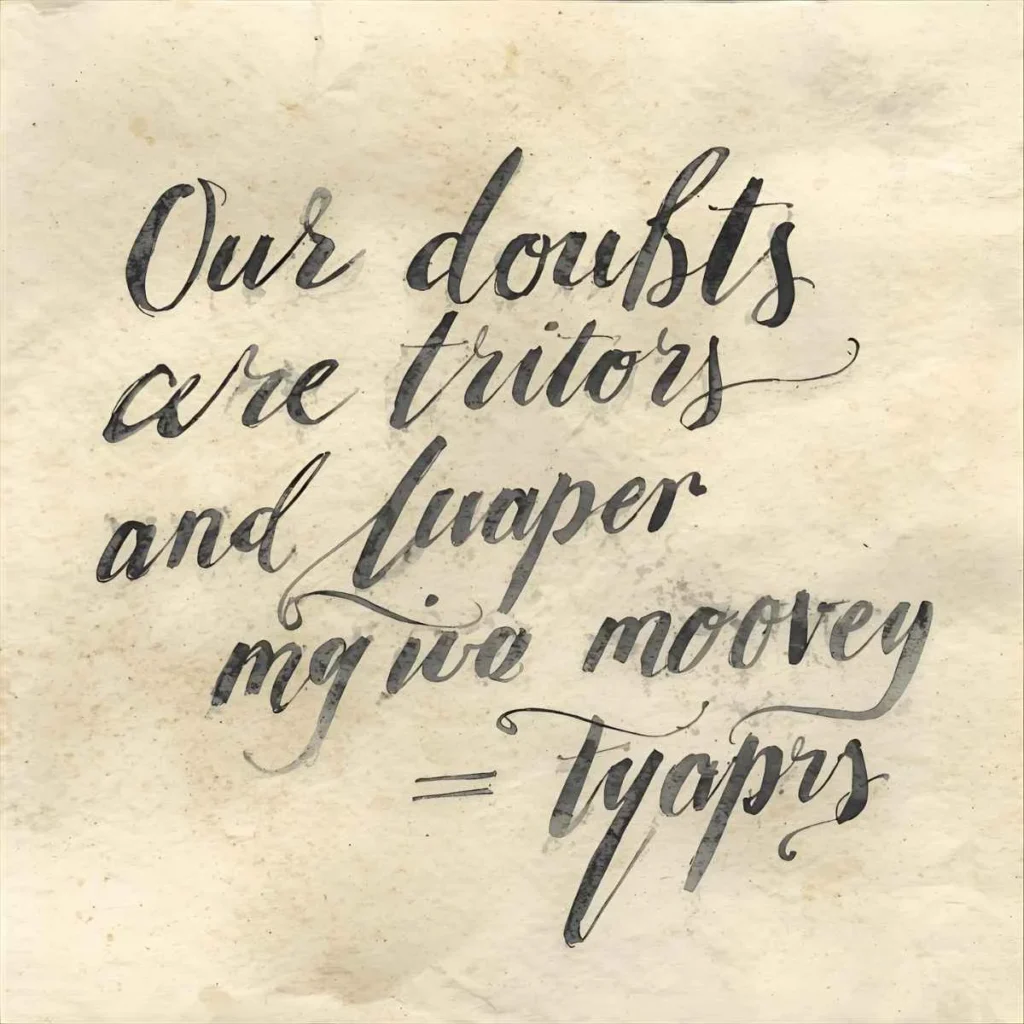 Our doubts
are tritors
and luaper
mg iva moovey
= Tyaprs